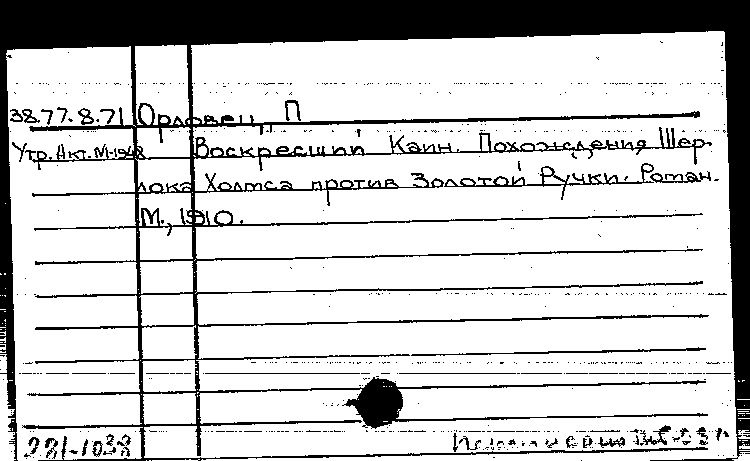 38.77.8.71 Орловец, П
Утр. Акт. М-1948 Воскресший Каин. Похождения Шер-
лока Холмса против Золотой Ручки. Роман.
М., 1910.
281-1038